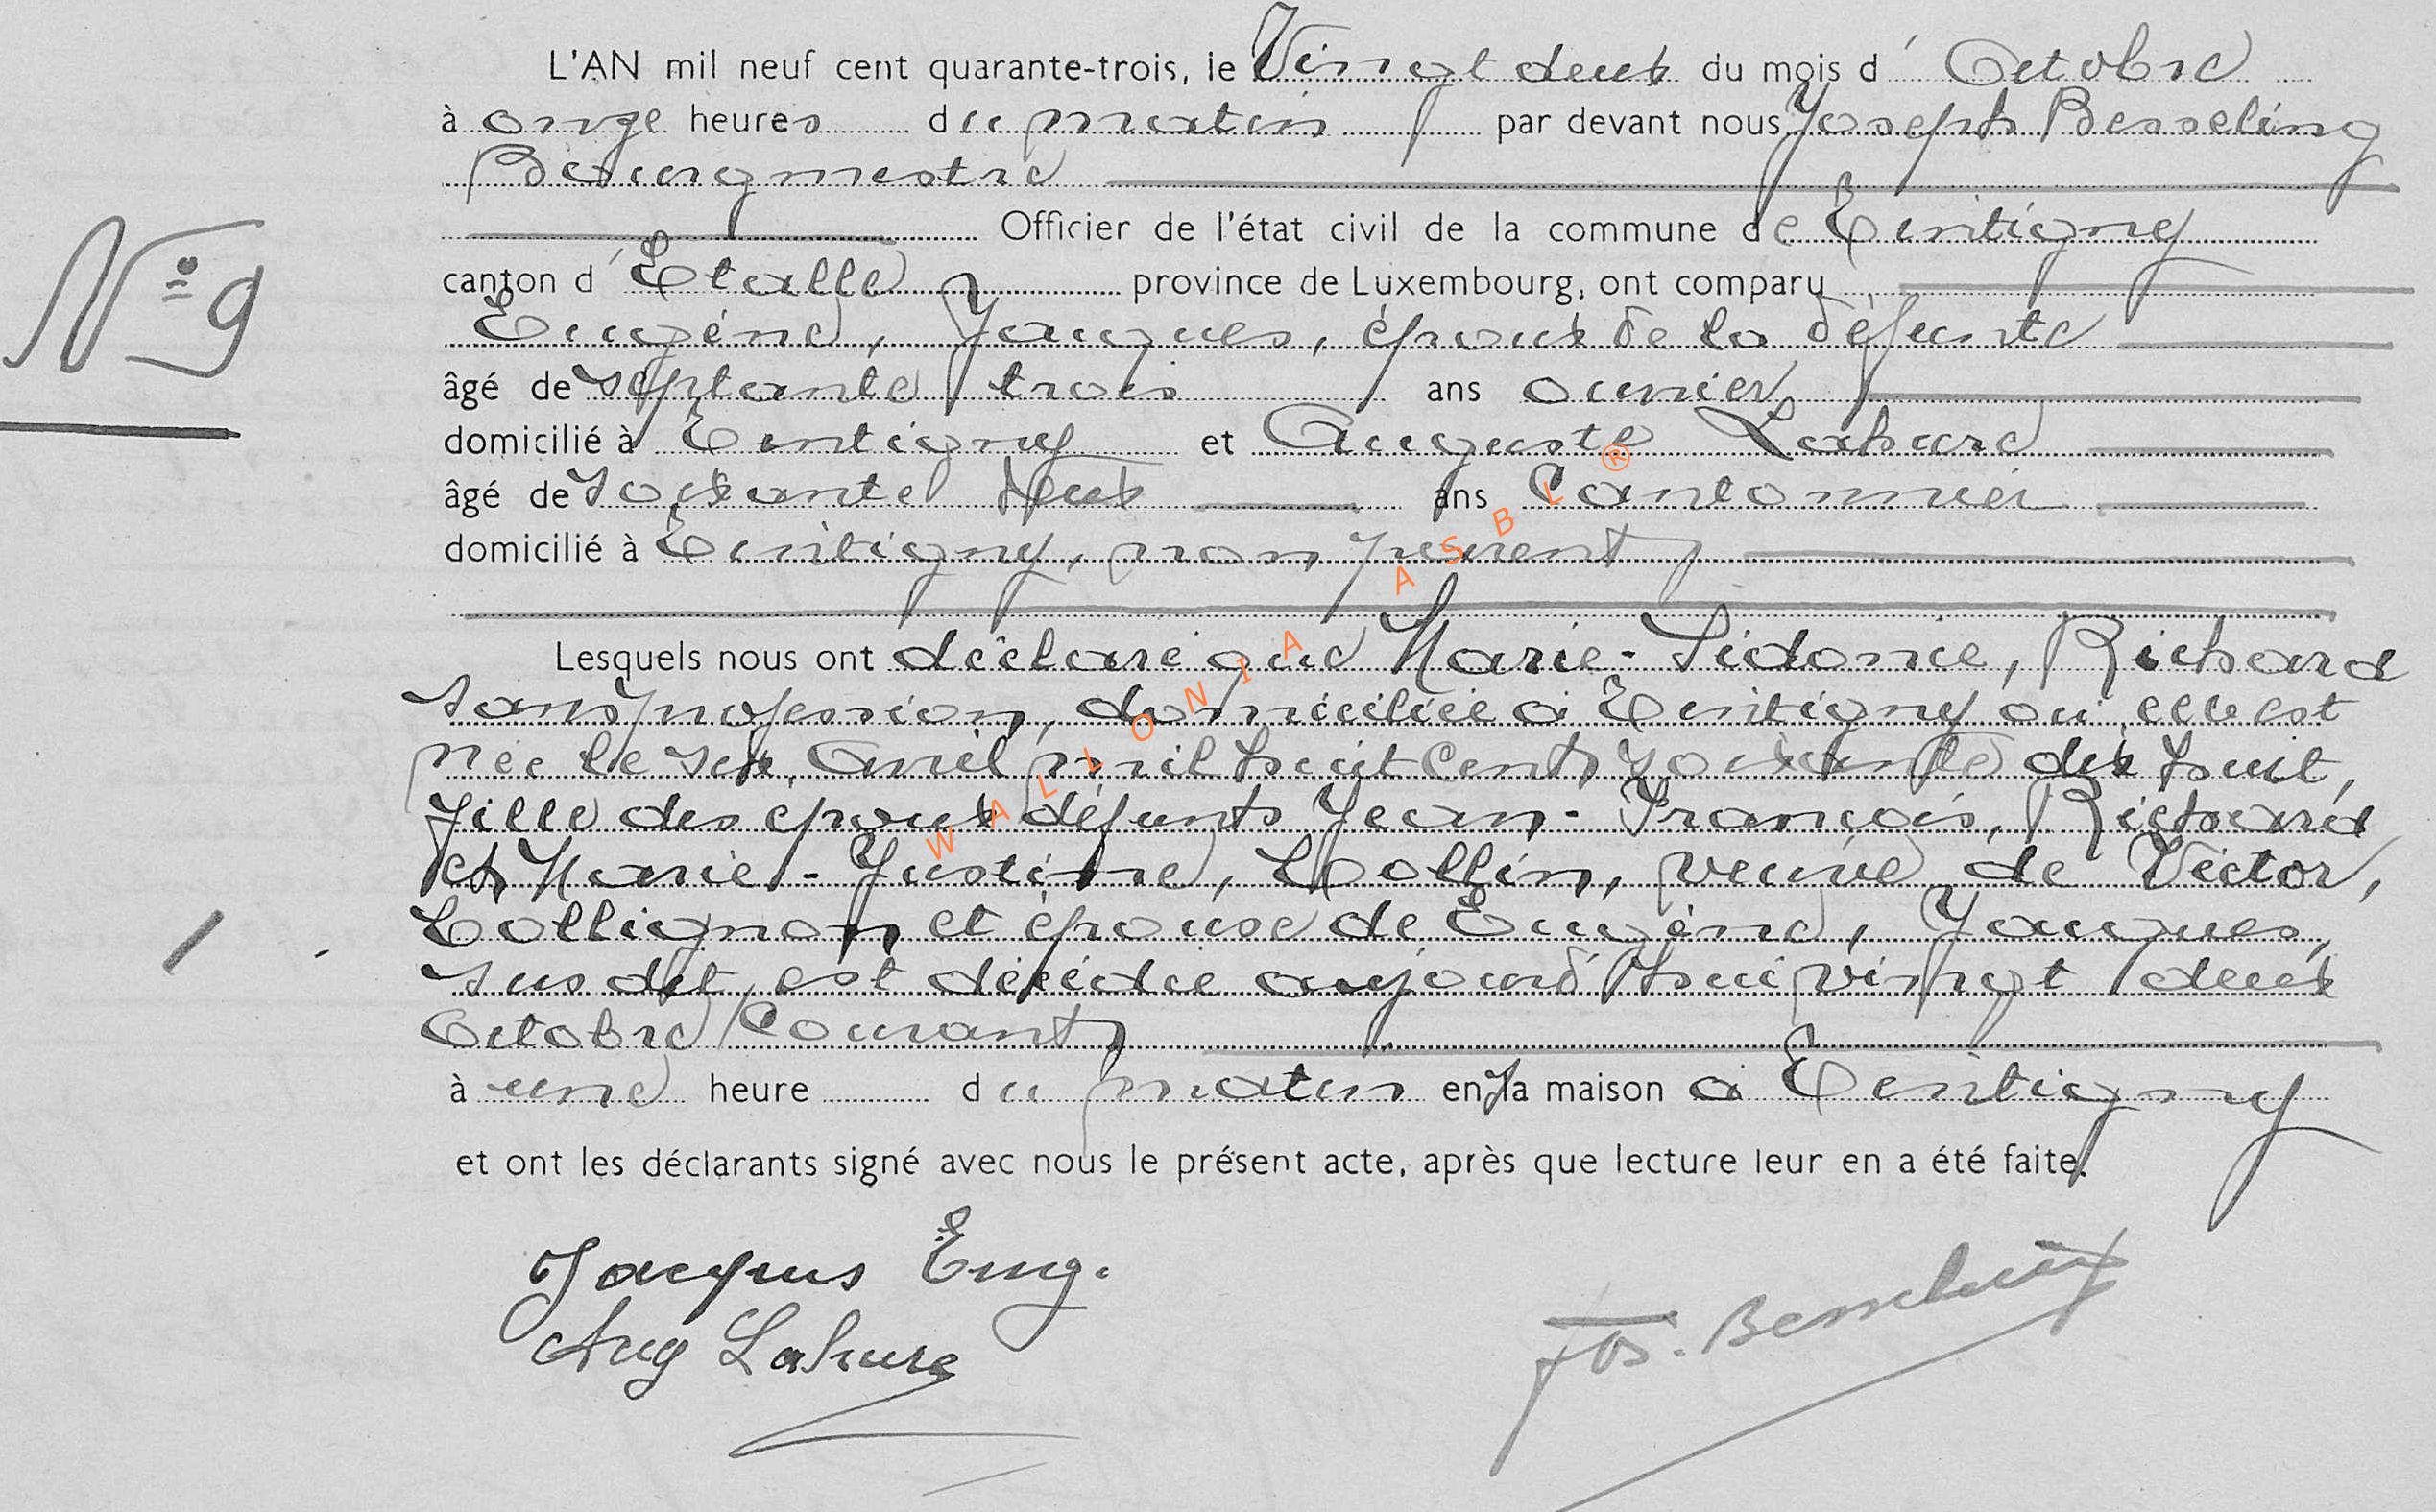 L'AN mil neuf cent quarante-trois, le Vingt deux du mois d' Octobre
à onze heures du matin par devant nous Joseph Besseling
Bourgmestre
Officier de l'état civil de la commune de Tintigny
canton d' Etalle province de Luxembourg, ont comparu
Eugène, Jacques, époux de la défunte
N° 9
âgé de septante trois ans ouvrier
domicilié à Tintigny et Auguste Lahure
âgé de soixante deux ans Cantonnier
domicilié à Tintigny, non parent
Lesquels nous ont déclaré que Marie-Sidonie, Richard
sans profession, domiciliée à Tintigny où elle est
née le six Avril mil huit cent soixante dix huit,
fille des époux défunts Jean-François, Richard
et Marie-Justine, Collin, veuve de Victor,
Collignon et épouse de Eugène, Jacques,
susdit, est décédée aujourd'hui vingt deux
Octobre Courant
à une heure du matin en sa maison à Tintigny
et ont les déclarants signé avec nous le présent acte, après que lecture leur en a été faite.
Jacques Eug.
Aug Lahure
Jos. Besseling
WALLONIA ASBL ®